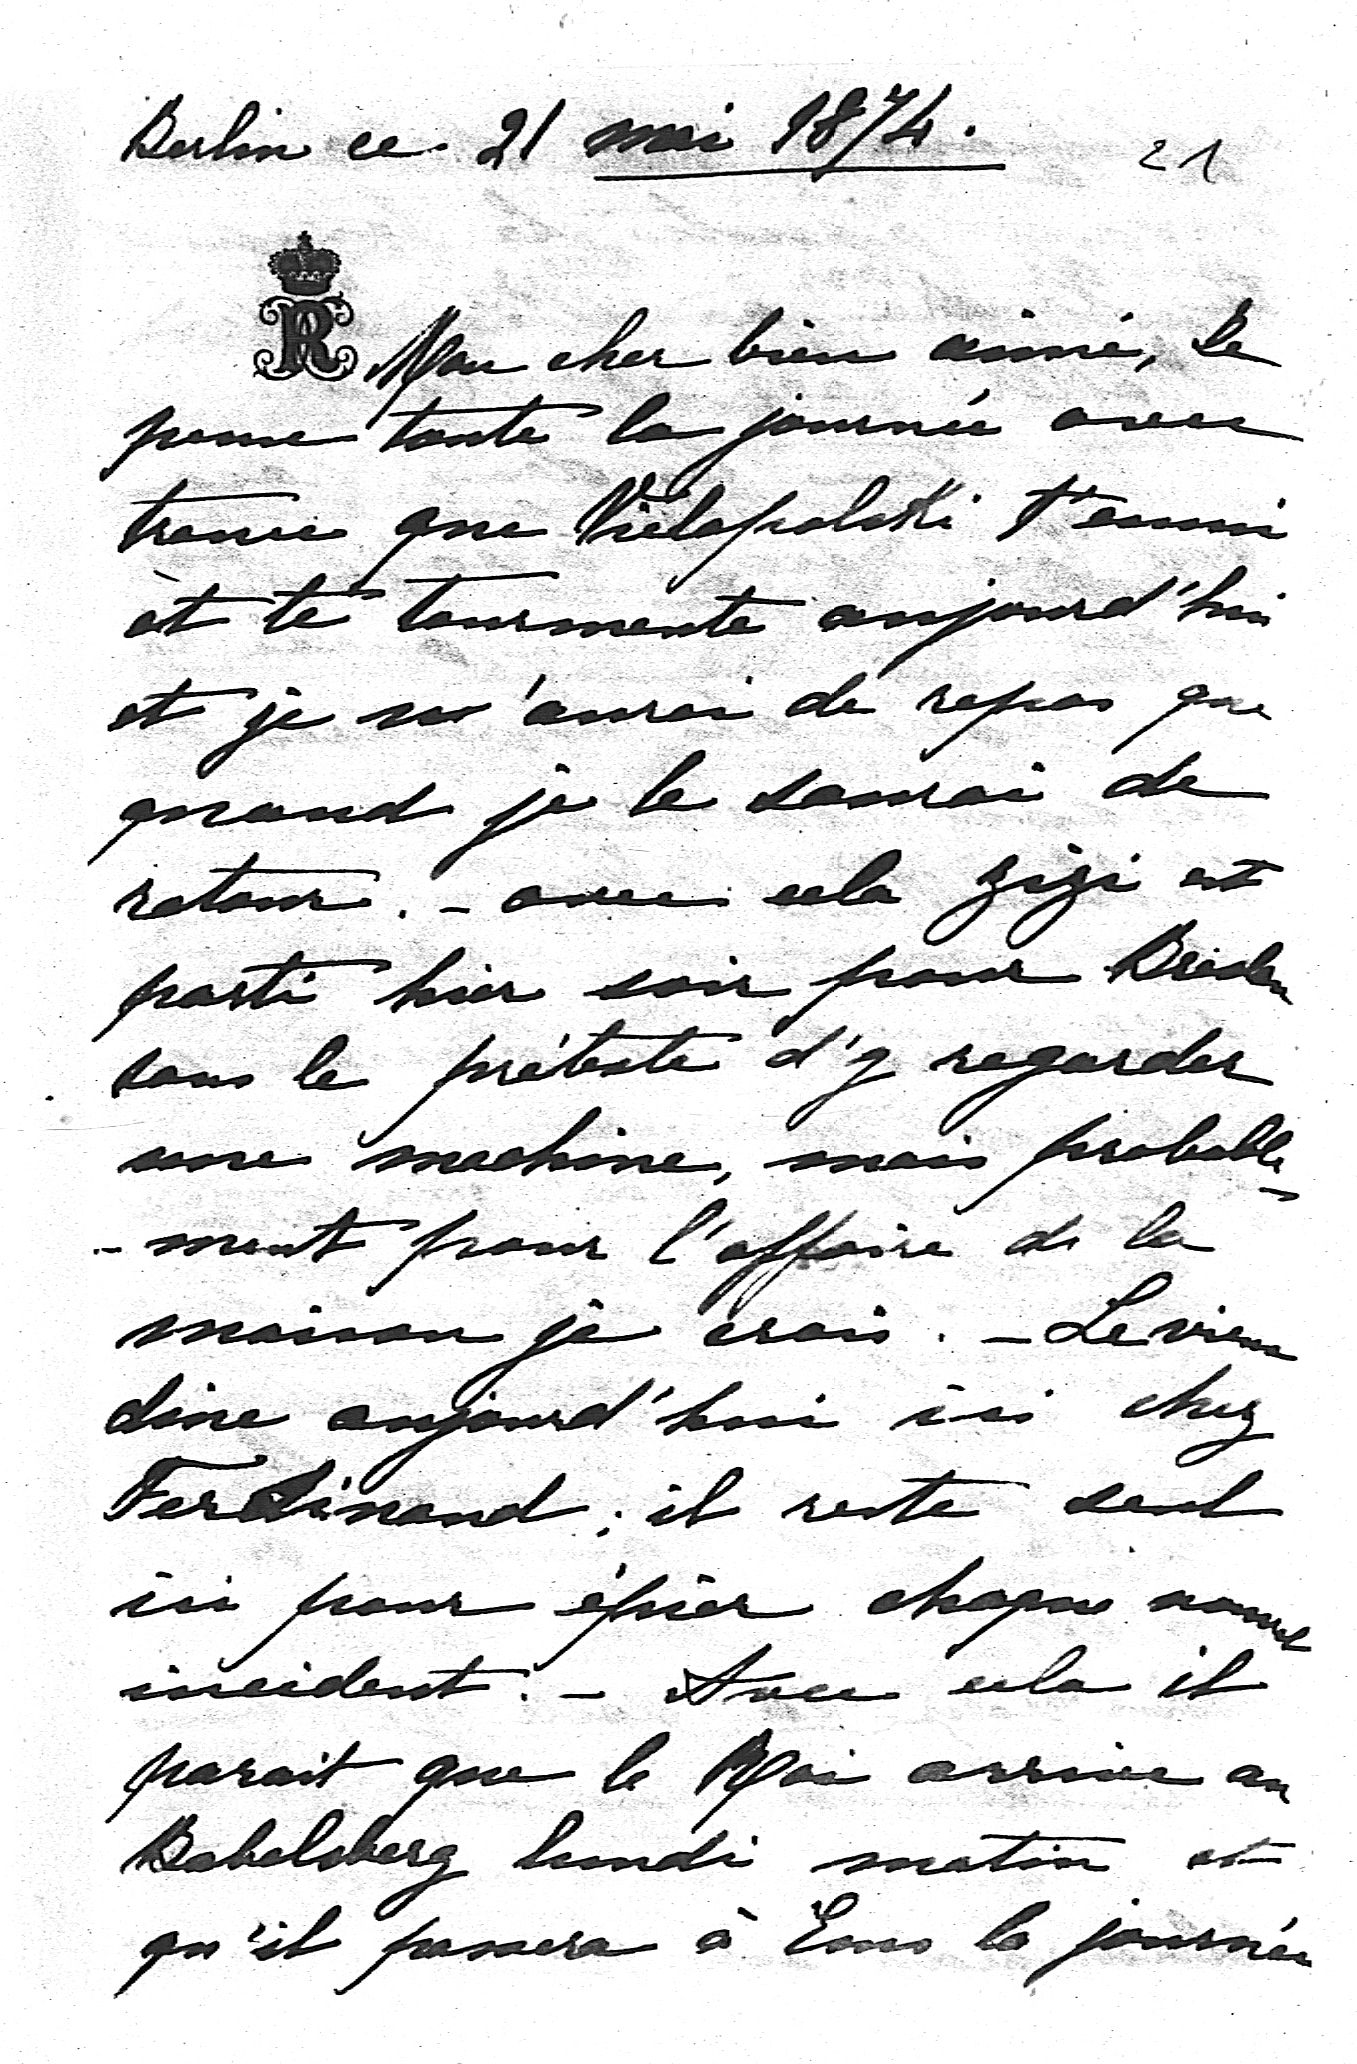 Berlin ce 21 mai 1874.
21
R
Mon cher bien aimé, Je
pense toute la journée avec
transe que Vielopolski t'ennui
èt te tourmente aujourd'hui
et je n'aurai de repos que
quand je le saurai de
retour. - avec cela Zizi est
parti hier soir pour
sous le prétexte d'y regarder
une machine, mais probable-
-ment pour l'affaire de la
maison je crois. - Le vieux
dine aujourd'hui ici chez
Ferdinand; il reste seul
ici pour épier chaque nouvel
incident. - Avec cela il
parait que le Roi arrive au
Babelsberg lundi matin et
qu'il passera à Ems la journée